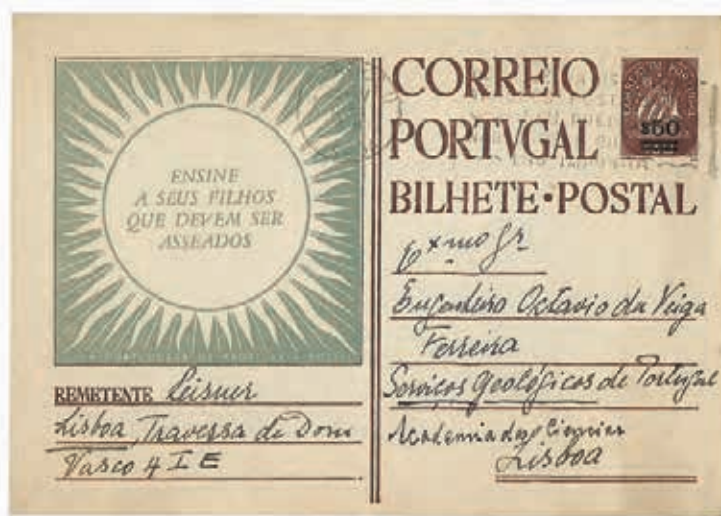 ENSINE
A SEUS FILHOS
QUE DEVEM SER
ASSEADOS
REMETENTE Leisner
Lisboa, Travessa de Dom
Vasco 4 I E
CORREIO
PORTVGAL
BILHETE•POSTAL
$50
Exmo Sr
Engenheiro Octavio da Veiga
Ferreira
Serviços Geológicos de Portugal
Academia das Ciencias
Lisboa